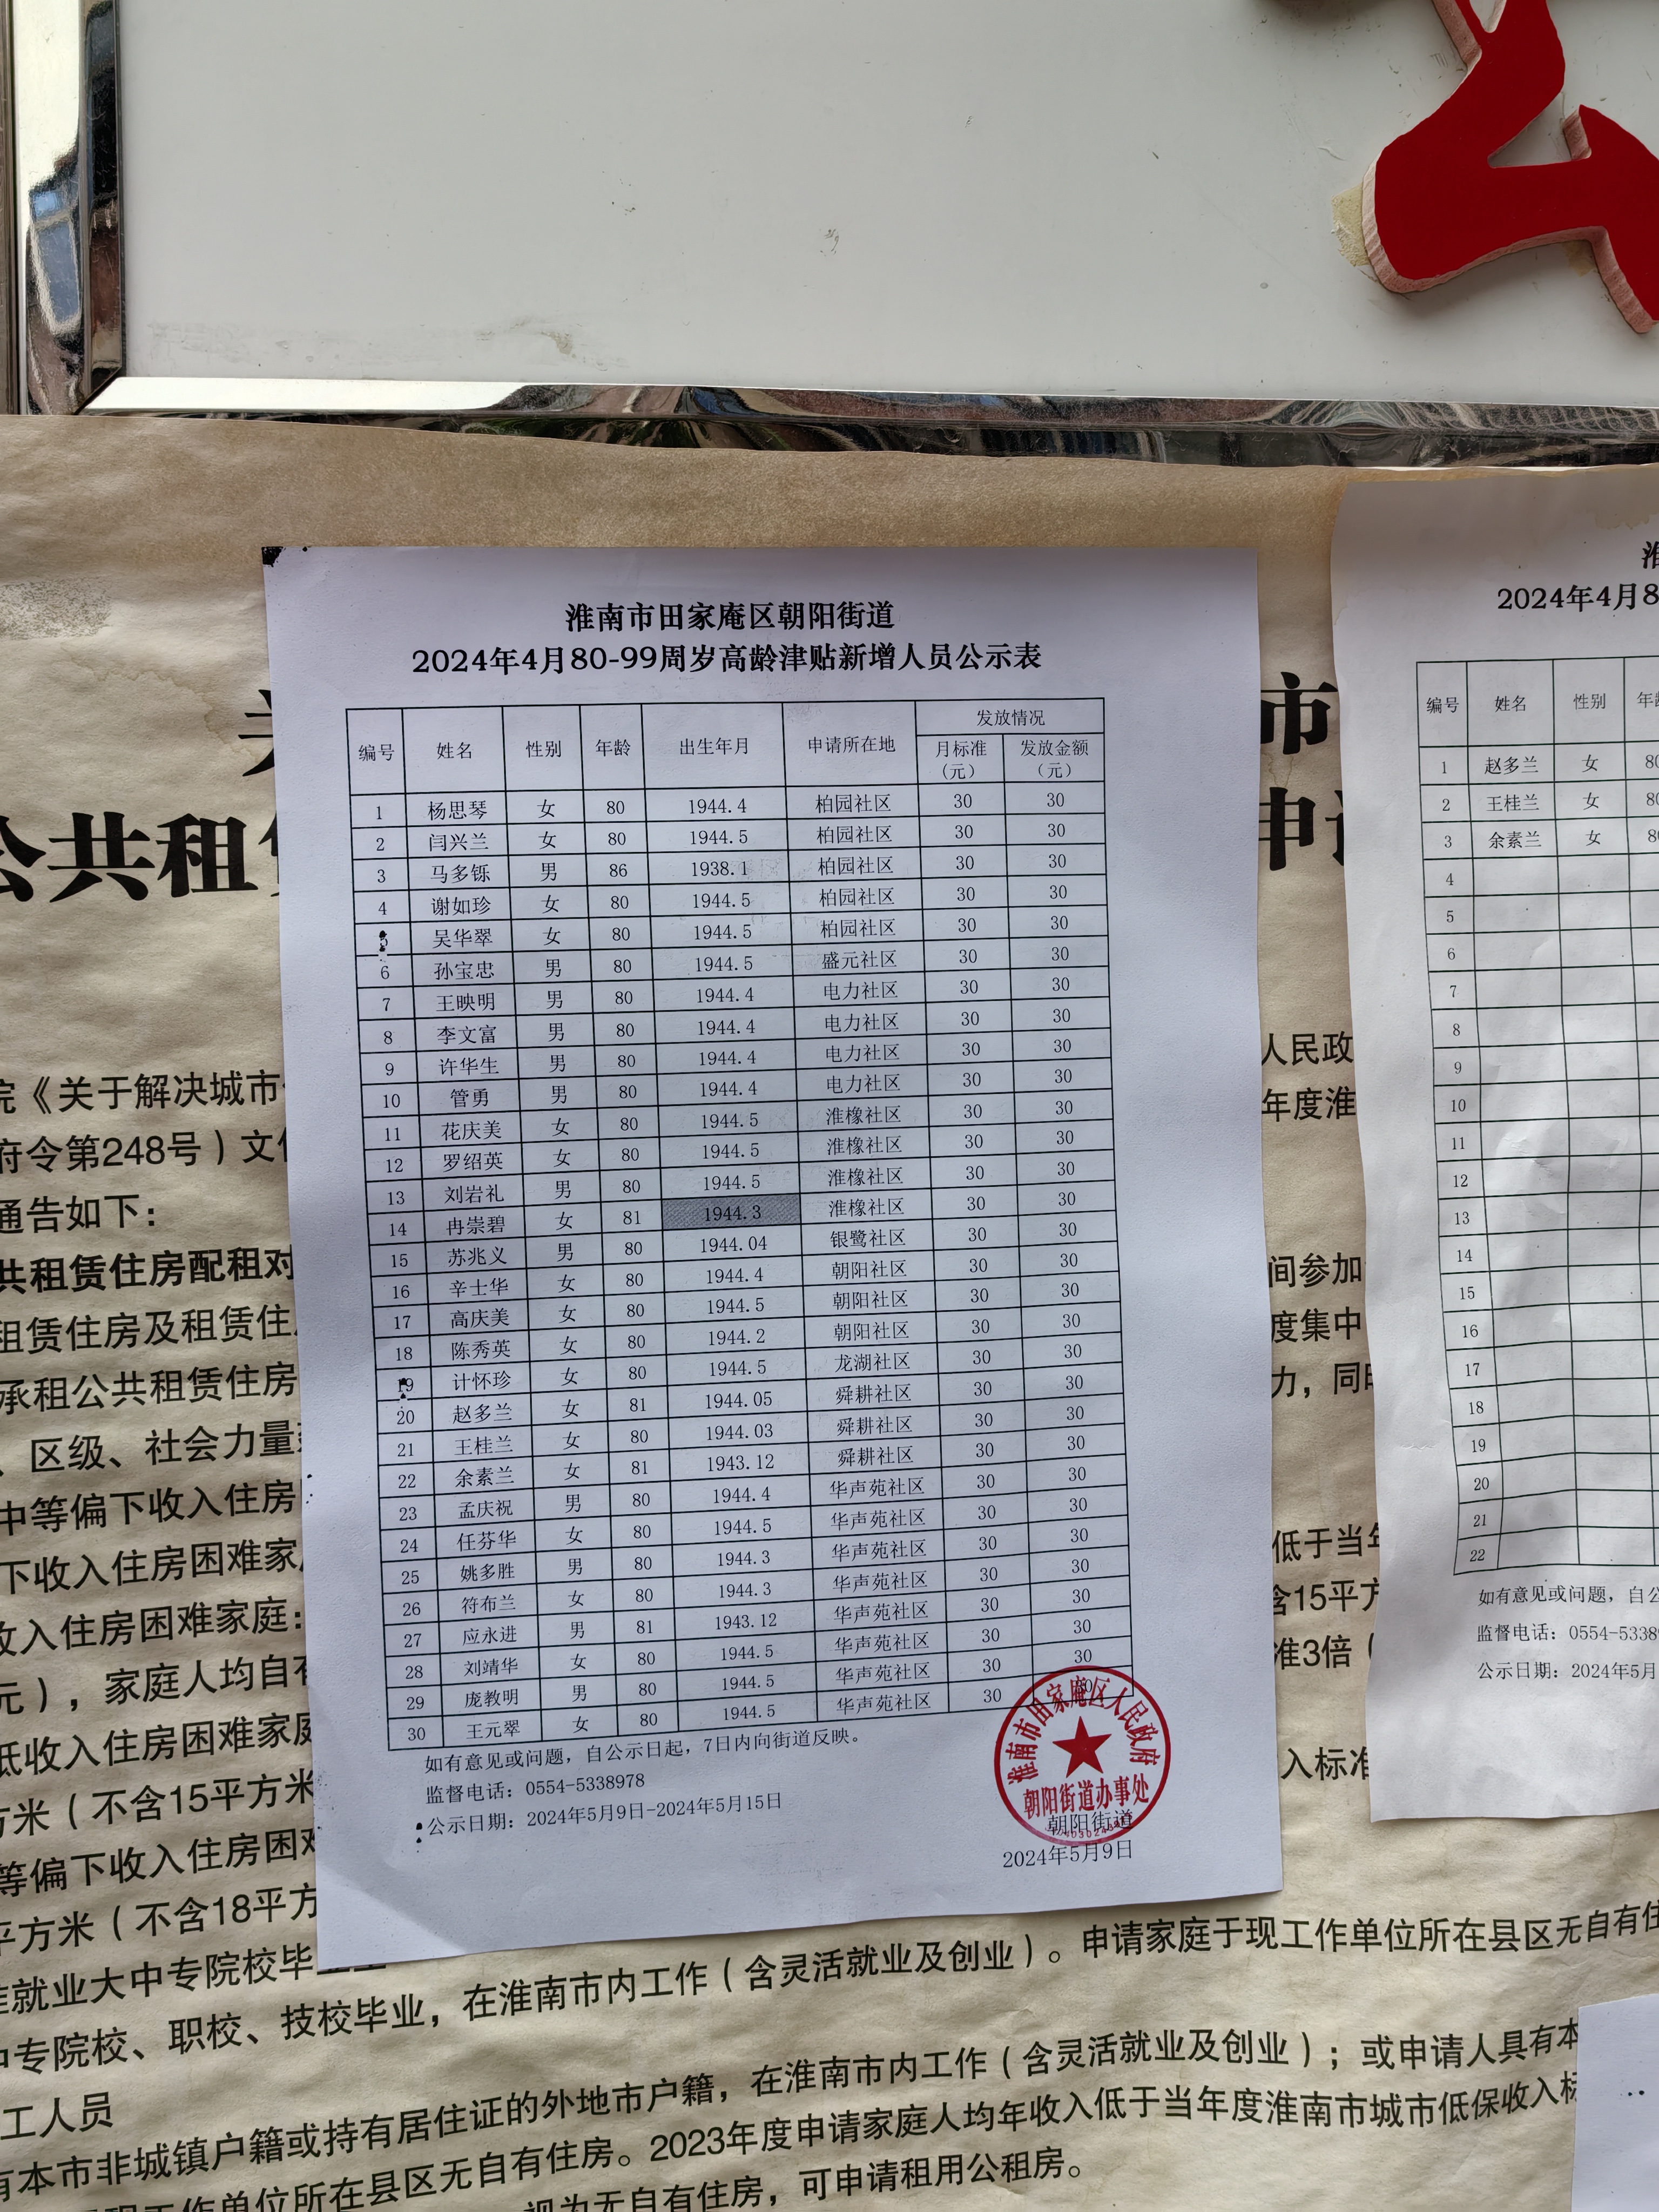 淮南市田家庵区朝阳街道
2024年4月80-99周岁高龄津贴新增人员公示表
编号 姓名 性别 年龄 出生年月 申请所在地 发放情况
月标准（元） 发放金额（元）
1 杨思琴 女 80 1944.4 柏园社区 30 30
2 闫兴兰 女 80 1944.5 柏园社区 30 30
3 马多铄 男 86 1938.1 柏园社区 30 30
4 谢如珍 女 80 1944.5 柏园社区 30 30
5 吴华翠 女 80 1944.5 柏园社区 30 30
6 孙宝忠 男 80 1944.5 盛元社区 30 30
7 王映明 男 80 1944.4 电力社区 30 30
8 李文富 男 80 1944.4 电力社区 30 30
9 许华生 男 80 1944.4 电力社区 30 30
10 管勇 男 80 1944.4 电力社区 30 30
11 花庆美 女 80 1944.5 淮橡社区 30 30
12 罗绍英 女 80 1944.5 淮橡社区 30 30
13 刘岩礼 男 80 1944.5 淮橡社区 30 30
14 冉崇碧 女 81 1944.3 淮橡社区 30 30
15 苏兆义 男 80 1944.04 银鹭社区 30 30
16 辛士华 女 80 1944.4 朝阳社区 30 30
17 高庆美 女 80 1944.5 朝阳社区 30 30
18 陈秀英 女 80 1944.2 朝阳社区 30 30
19 计怀珍 女 80 1944.5 龙湖社区 30 30
20 赵多兰 女 81 1944.05 舜耕社区 30 30
21 王桂兰 女 80 1944.03 舜耕社区 30 30
22 余素兰 女 81 1943.12 舜耕社区 30 30
23 孟庆祝 男 80 1944.4 华声苑社区 30 30
24 任芬华 女 80 1944.5 华声苑社区 30 30
25 姚多胜 男 80 1944.3 华声苑社区 30 30
26 符布兰 女 80 1944.3 华声苑社区 30 30
27 应永进 男 81 1943.12 华声苑社区 30 30
28 刘靖华 女 80 1944.5 华声苑社区 30 30
29 庞教明 男 80 1944.5 华声苑社区 30 30
30 王元翠 女 80 1944.5 华声苑社区 30 30
如有意见或问题，自公示日起，7日内向街道反映。
监督电话：0554-5338978
公示日期：2024年5月9日-2024年5月15日
淮南市田家庵区人民政府
朝阳街道办事处
朝阳街道
2024年5月9日
2024年4月8
编号 姓名 性别
1 赵多兰 女 80
2 王桂兰 女 80
3 余素兰 女 80
4
5
6
7
8
9
10
11
12
13
14
15
16
17
18
19
20
21
22
如有意见或问题，自公
监督电话：0554-5338
公示日期：2024年5月
市
公共租
申
院《关于解决城市
人民政
府令第248号）文
年度淮
通告如下：
共租赁住房配租对
间参加
租赁住房及租赁住
度集中
承租公共租赁住房
力，同
、区级、社会力量
中等偏下收入住房
下收入住房困难家
低于当
收入住房困难家庭：
含15平方
元），家庭人均自有
准3倍（
低收入住房困难家庭
入标准
方米（不含15平方米
等偏下收入住房困难
平方米（不含18平方
准就业大中专院校毕业生
中专院校、职校、技校毕业，在淮南市内工作（含灵活就业及创业）。申请家庭于现工作单位所在县区无自有住
工人员
有本市非城镇户籍或持有居住证的外地市户籍，在淮南市内工作（含灵活就业及创业）；或申请人具有本
现工作单位所在县区无自有住房。2023年度申请家庭人均年收入低于当年度淮南市城市低保收入标
视为无自有住房，可申请租用公租房。